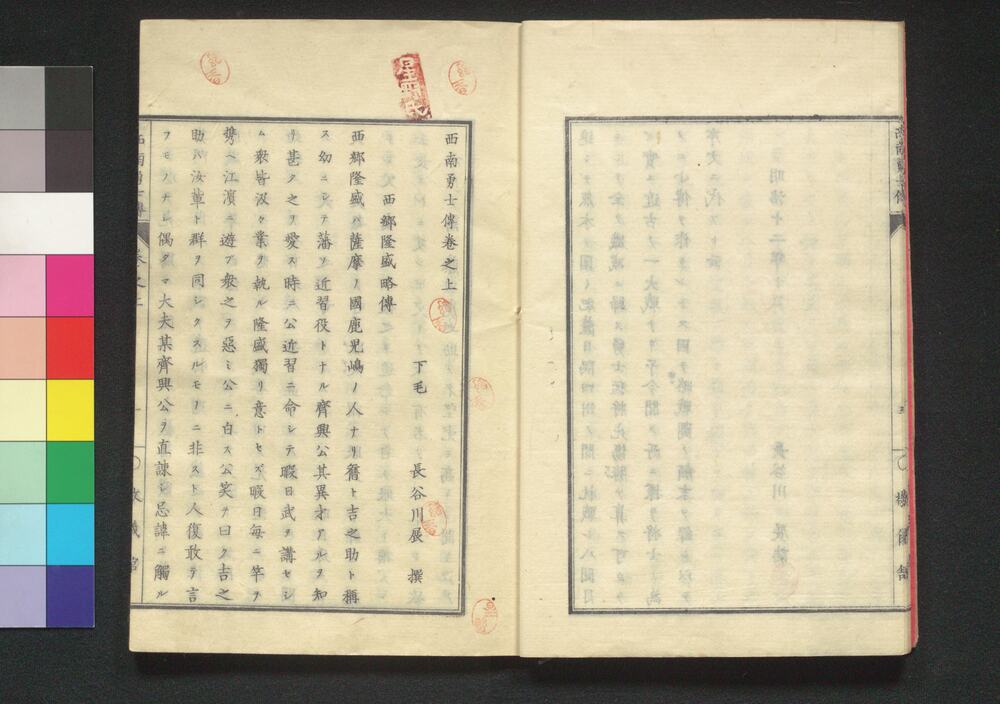 西南勇士傳卷之上
下毛 長谷川展 撰
西郷隆盛略傳
西郷隆盛ハ薩摩ノ國鹿児嶋ノ人ナリ舊ト吉之助ト稱
ス幼ニシテ藩ノ近習役トナル齊興公其異才アルヲ知
リ甚タ之ヲ愛ス時ニ公近習ニ命シテ暇日武ヲ講セシ
ム衆皆汲々業ヲ執ル隆盛獨リ意トセズ暇日毎ニ竿ヲ
携ヘ江濱ニ遊フ衆之ヲ惡ミ公ニ白ス公笑テ曰ク吉之
助ハ汝輩ト群ヲ同シクスルモノニ非スト人復敢テ言
フモノナシ偶タマ大夫某齊興公ヲ直諫シ忌諱ニ觸ル